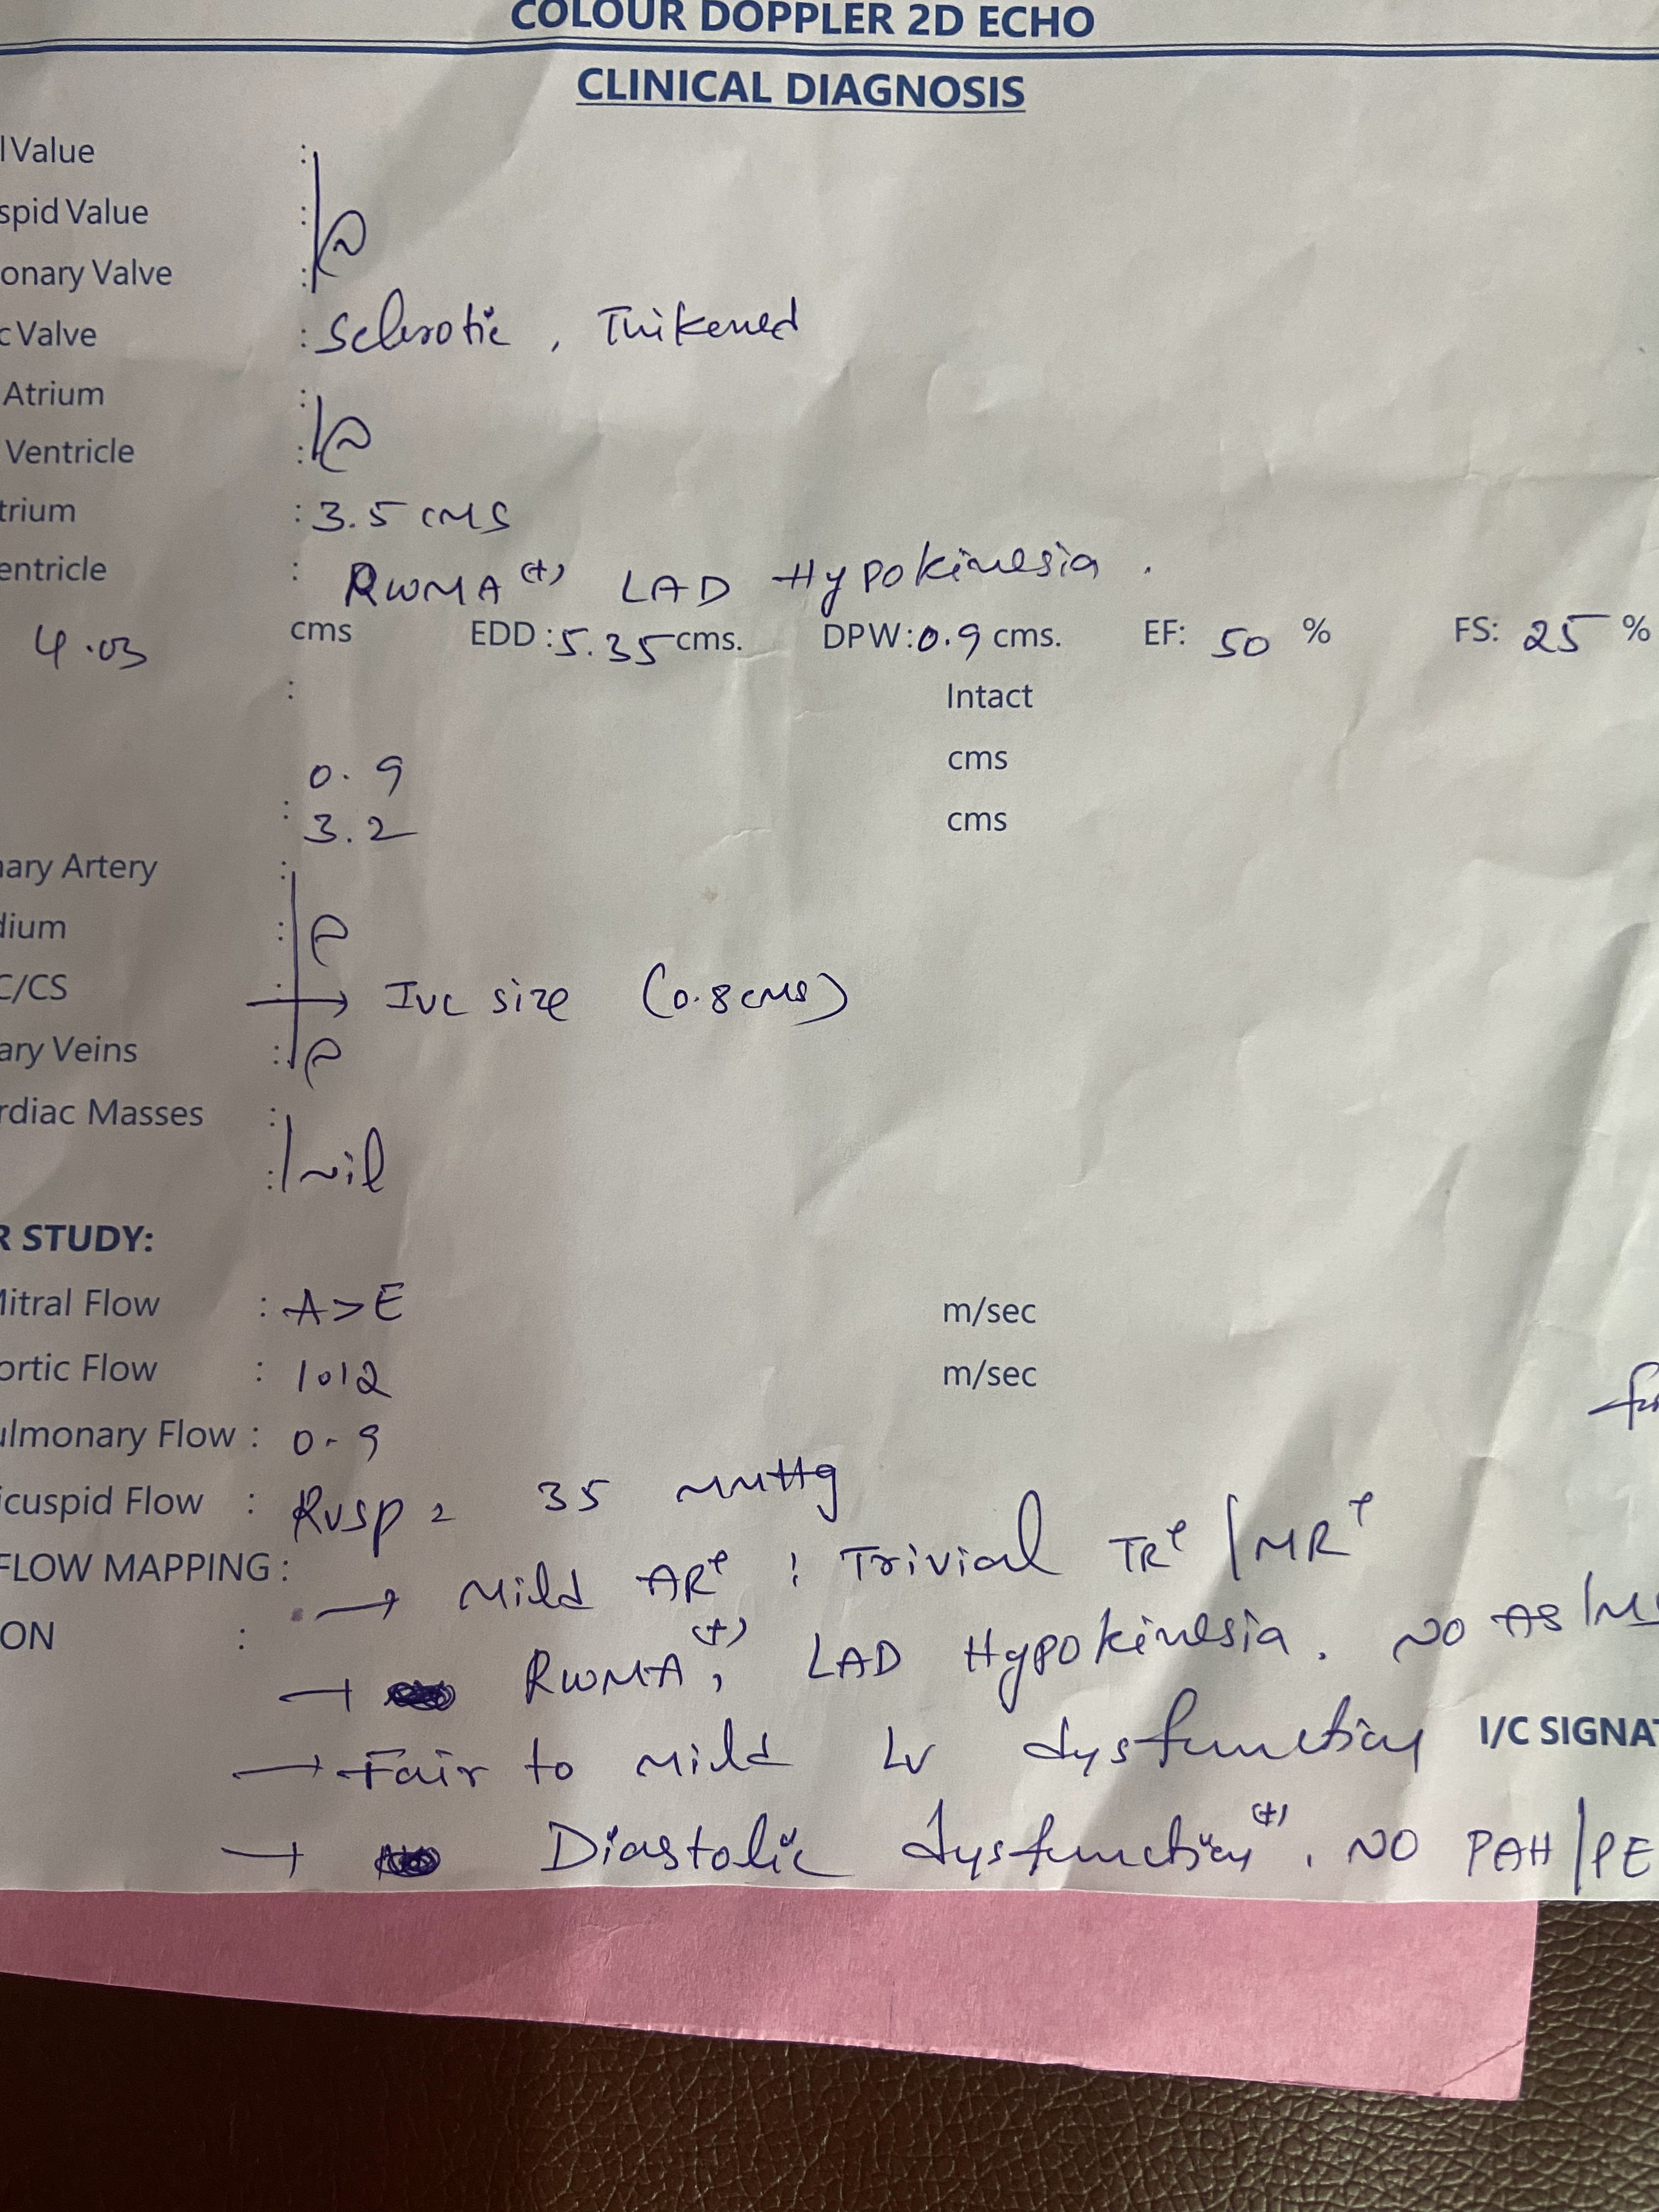 COLOUR DOPPLER 2D ECHO
CLINICAL DIAGNOSIS
l Value :
spid Value :
onary Valve : (N)
c Valve : Sclerotic, Thikened
Atrium :
Ventricle : (N)
trium : 3.5 cms
entricle : RWMA (+) LAD Hypokinesia.
4.03 cms EDD: 5.35 cms. DPW: 0.9 cms. EF: 50 % FS: 25 %
: Intact
0.9 cms
: 3.2 cms
nary Artery :
dium :
C/CS : → IVC size (0.8 cms)
ary Veins :
rdiac Masses :
: Nil
R STUDY:
Mitral Flow : A>E m/sec
ortic Flow : 1.12 m/sec
ulmonary Flow : 0.9
icuspid Flow : RVSP = 35 mmHg
FLOW MAPPING : → Mild AR ; Trivial TR / MR
ON :
→ RWMA (+), LAD Hypokinesia. NO AS/M
→ Fair to mild LV dysfunction
I/C SIGNA
→ Diastolic dysfunction (+). NO PAH/PE